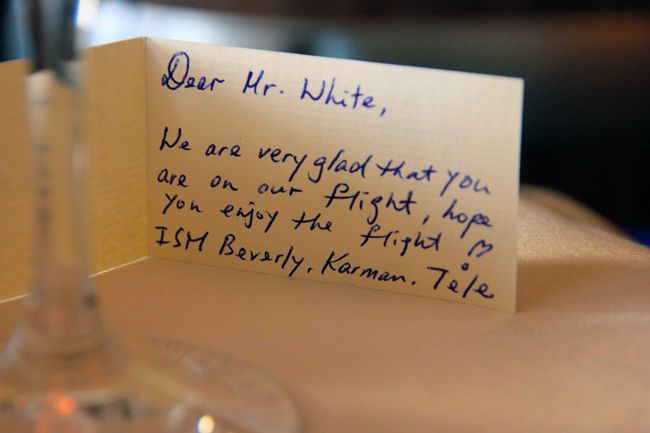 Dear Mr. White,
We are very glad that you
are on our flight, hope
you enjoy the flight
ISM Beverly. Karman. Tele